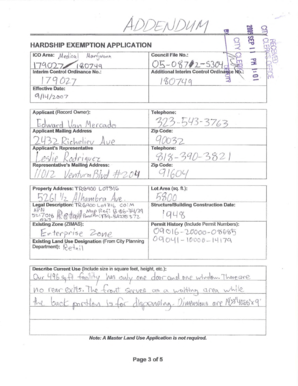 ADDENDUM
HARDSHIP EXEMPTION APPLICATION
ICO Area: Medical Marijuana
Council File No.:
179027/180749
Interim Control Ordinance No.:
Additional Interim Control Ordinance No.:
179027
180749
Effective Date:
9/14/2007
Applicant (Record Owner):
Telephone:
Edward Van Mercado
323-543-3763
Applicant Mailing Address
Zip Code:
90032
Applicant's Representative
Telephone:
Leslie Rodriguez
818-390-3821
Representative's Mailing Address:
Zip Code:
11012 Ventura Blvd #204
91604
Property Address:
Lot Area (sq. ft.):
5261 1/2 Alhambra Ave
5800
Legal Description:
Structure/Building Construction Date:
1948
Existing Zone (ZIMAS):
Permit History (Include Permit Numbers):
Enterprise Zone
Existing Land Use Designation (From City Planning
Department): Retail
Describe Current Use (include size in square feet, height, etc.):
Our 495 sq ft facility has only one door and one window. There are
no rear exits. The front serves as a waiting area while
the back portion is for dispensing. Dimensions are
Note: A Master Land Use Application is not required.
Page 3 of 5